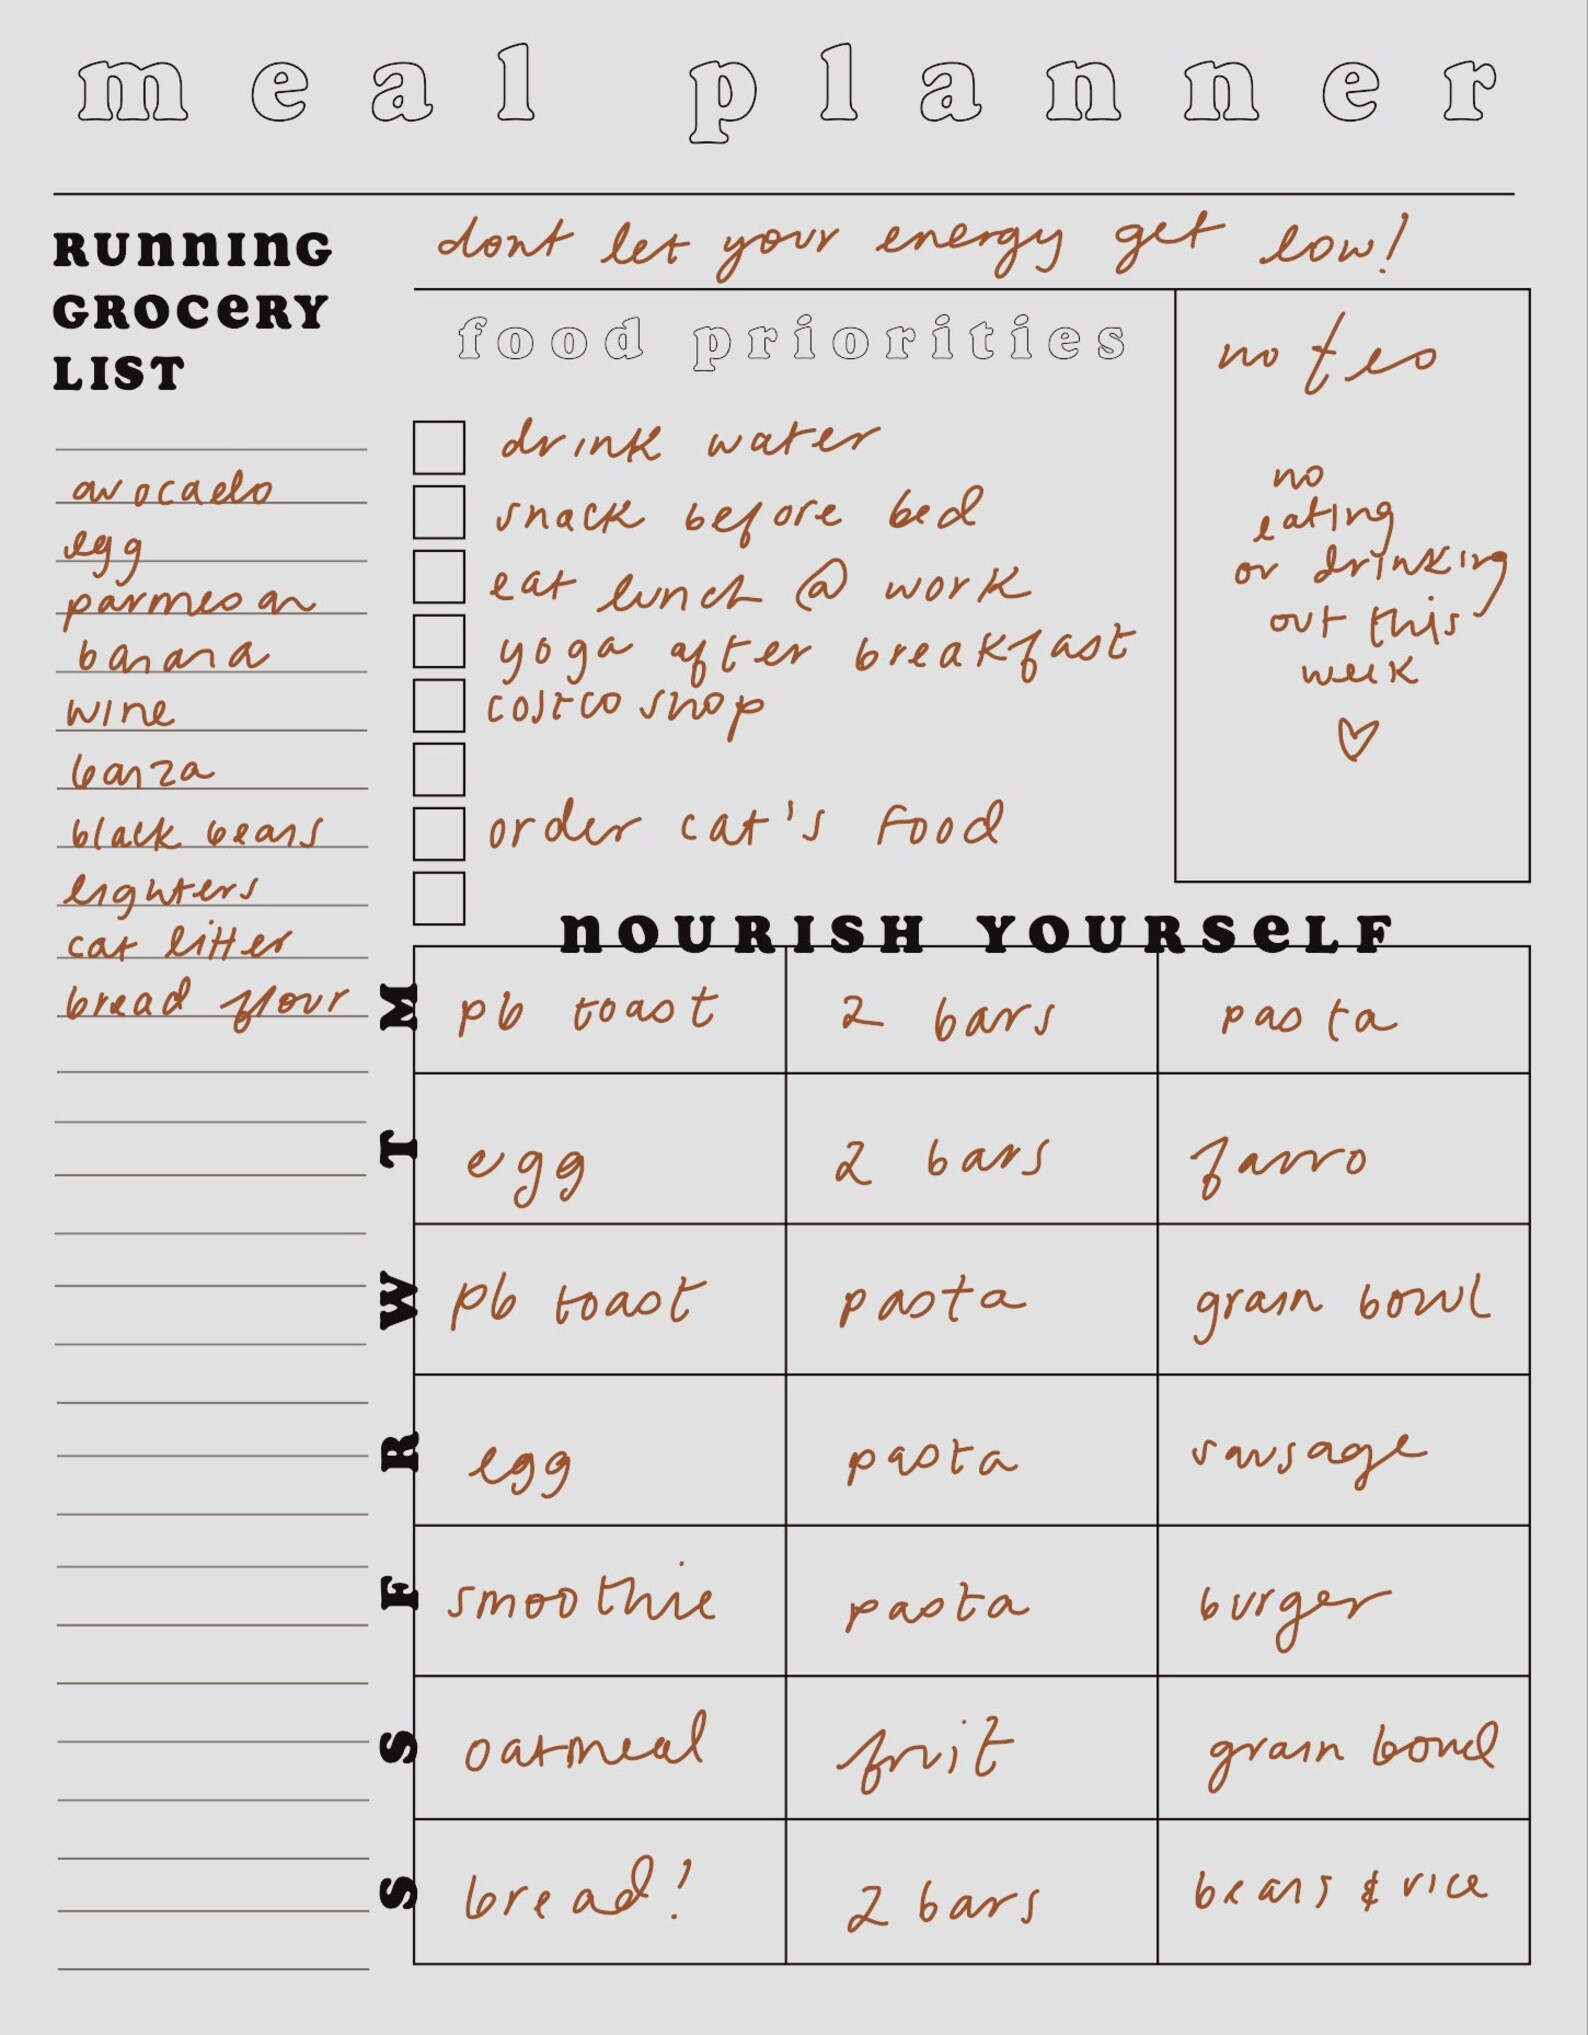 meal planner
RUNNING
GROCERY
LIST
avocado
egg
parmesan
banana
wine
banza
black beans
lighters
cat litter
bread flour
dont let your energy get low!
food priorities
drink water
snack before bed
eat lunch @ work
yoga after breakfast
costco shop
order cat's food
notes
no
eating
or drinking
out this
week
♡
NOURISH YOURSELF
M pb toast 2 bars pasta
T egg 2 bars farro
W pb toast pasta grain bowl
R egg pasta sausage
F smoothie pasta burger
S oatmeal fruit grain bowl
S bread! 2 bars beans & rice